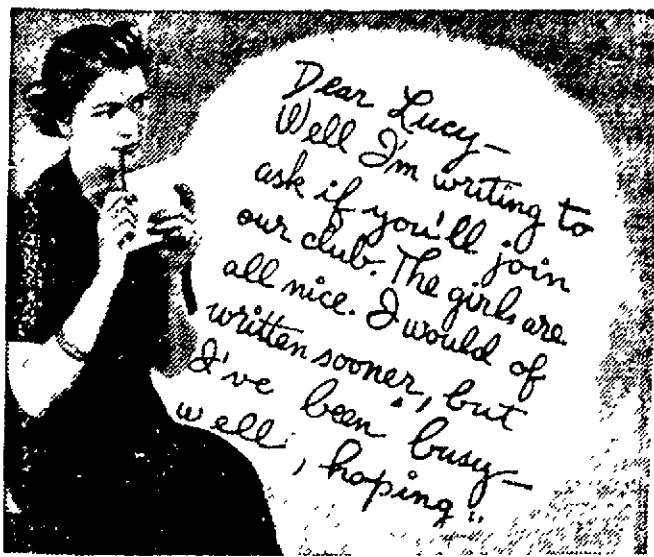 Dear Lucy—
Well I'm writing to
ask if you'll join
our club. The girls are
all nice. I would of
written sooner, but
I've been busy—
well, hoping..